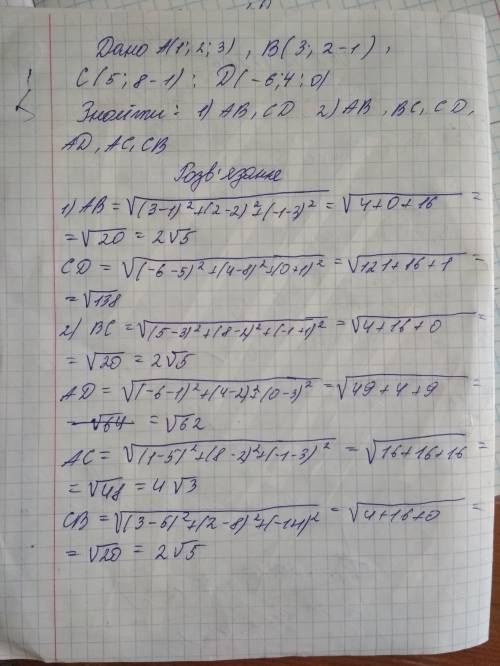 Дано A(1; 2; 3), B(3; 2-1),
C(5; 8-1); D(-6; 4; 0)
Знайти: 1) AB, CD 2) AB, BC, CD,
AD, AC, CB
Розв'язання
1) AB = √(3-1)²+(2-2)²+(-1-3)² = √4+0+16 =
= √20 = 2√5
CD = √(-6-5)²+(4-8)²+(0+1)² = √121+16+1 =
= √138
2) BC = √(5-3)²+(8-2)²+(-1+1)² = √4+16+0 =
= √20 = 2√5
AD = √(-6-1)²+(4-2)²+(0-3)² = √49+4+9 =
= √64 = √62
AC = √(1-5)²+(8-2)²+(-1-3)² = √16+16+16 =
= √48 = 4√3
CB = √(3-5)²+(2-8)²+(-1+1)² = √4+16+0 =
= √20 = 2√5